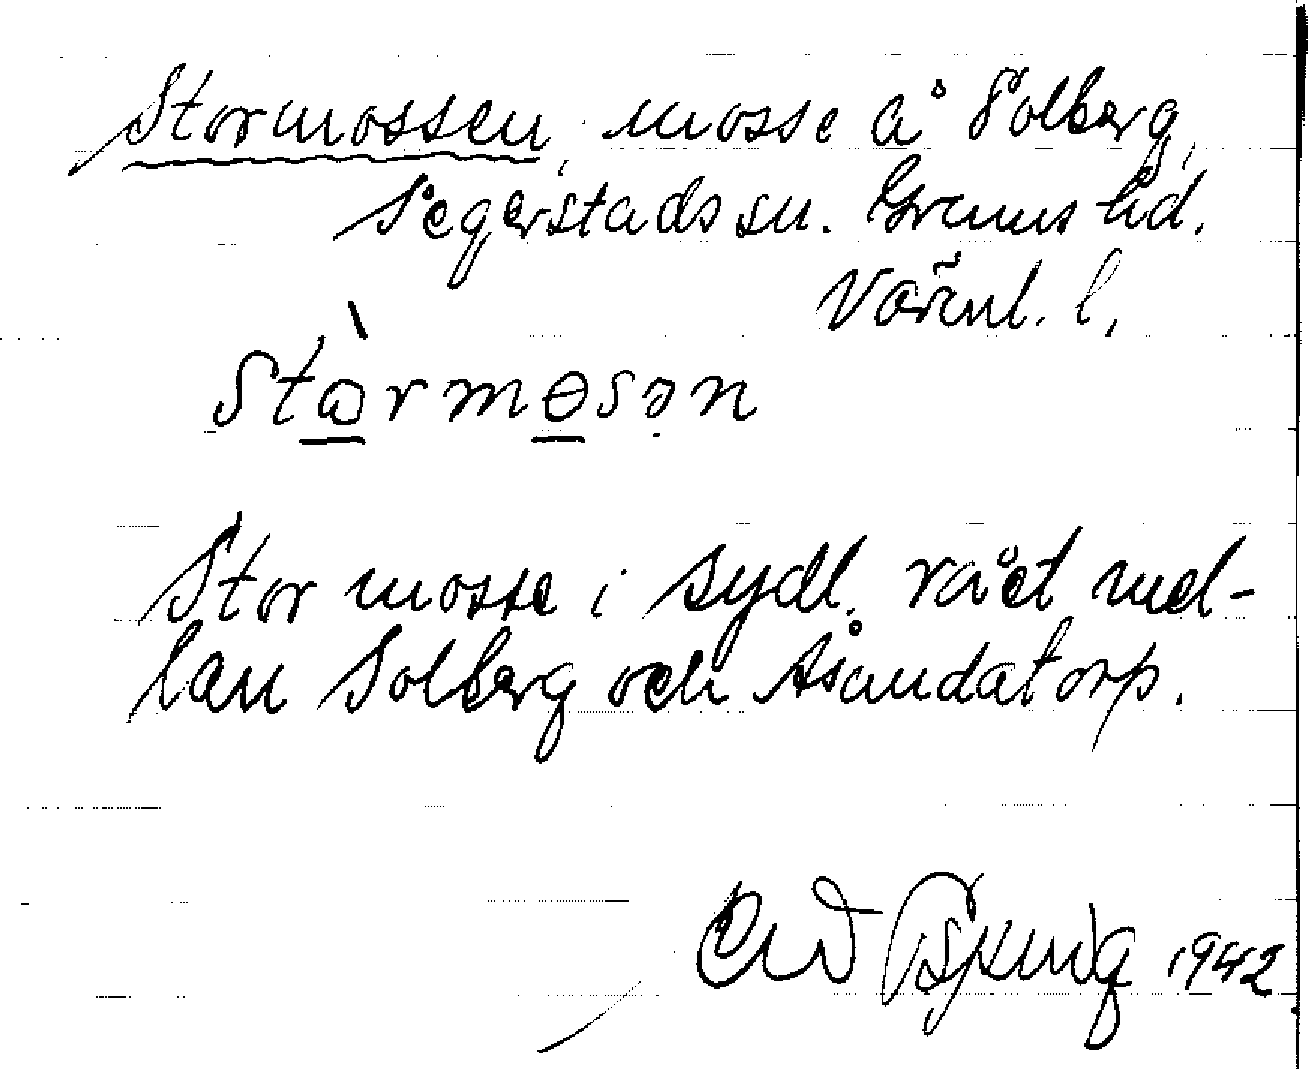 Stormossen, mosse å Solberg,
Segerstads sn. Grums hd.
Värml. l.
Stòrmɵsən
Stor mosse i sydl. rået mel-
lan Solberg och Åsundatorp.
1942